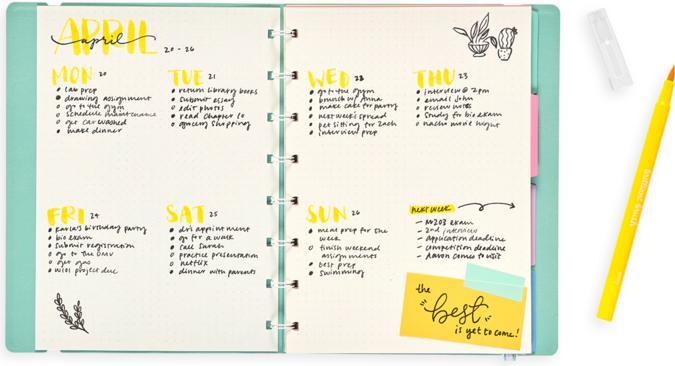 APRIL
april 20 - 26
MON 20
• lab prep
• drawing assignment
• go to the gym
o schedule maintenance
o get car washed
• make dinner
TUE 21
• return library books
• submit essay
o edit photos
• read chapter 10
o grocery shopping
WED 22
• go to the gym
• brunch w/ Anna
• make cake for party
• next week's spread
• pet sitting for Zach
• interview prep
THU 23
• interview @ 2pm
• email John
• review notes
• study for bio exam
o nacho movie night
FRI 24
• Karla's birthday party
• bio exam
• submit registration
o go to the DMV
o get gas
• W101 project due
SAT 25
• dr's appointment
o go for a walk
• call Sarah
o practice presentation
o netflix
• dinner with parents
SUN 26
• meal prep for the
week
o finish weekend
assignments
• test prep
• swimming
next week
- N203 exam
- 2nd interview
- application deadline
- competition deadline
- Aaron comes to visit
the
"best"
is yet to come!